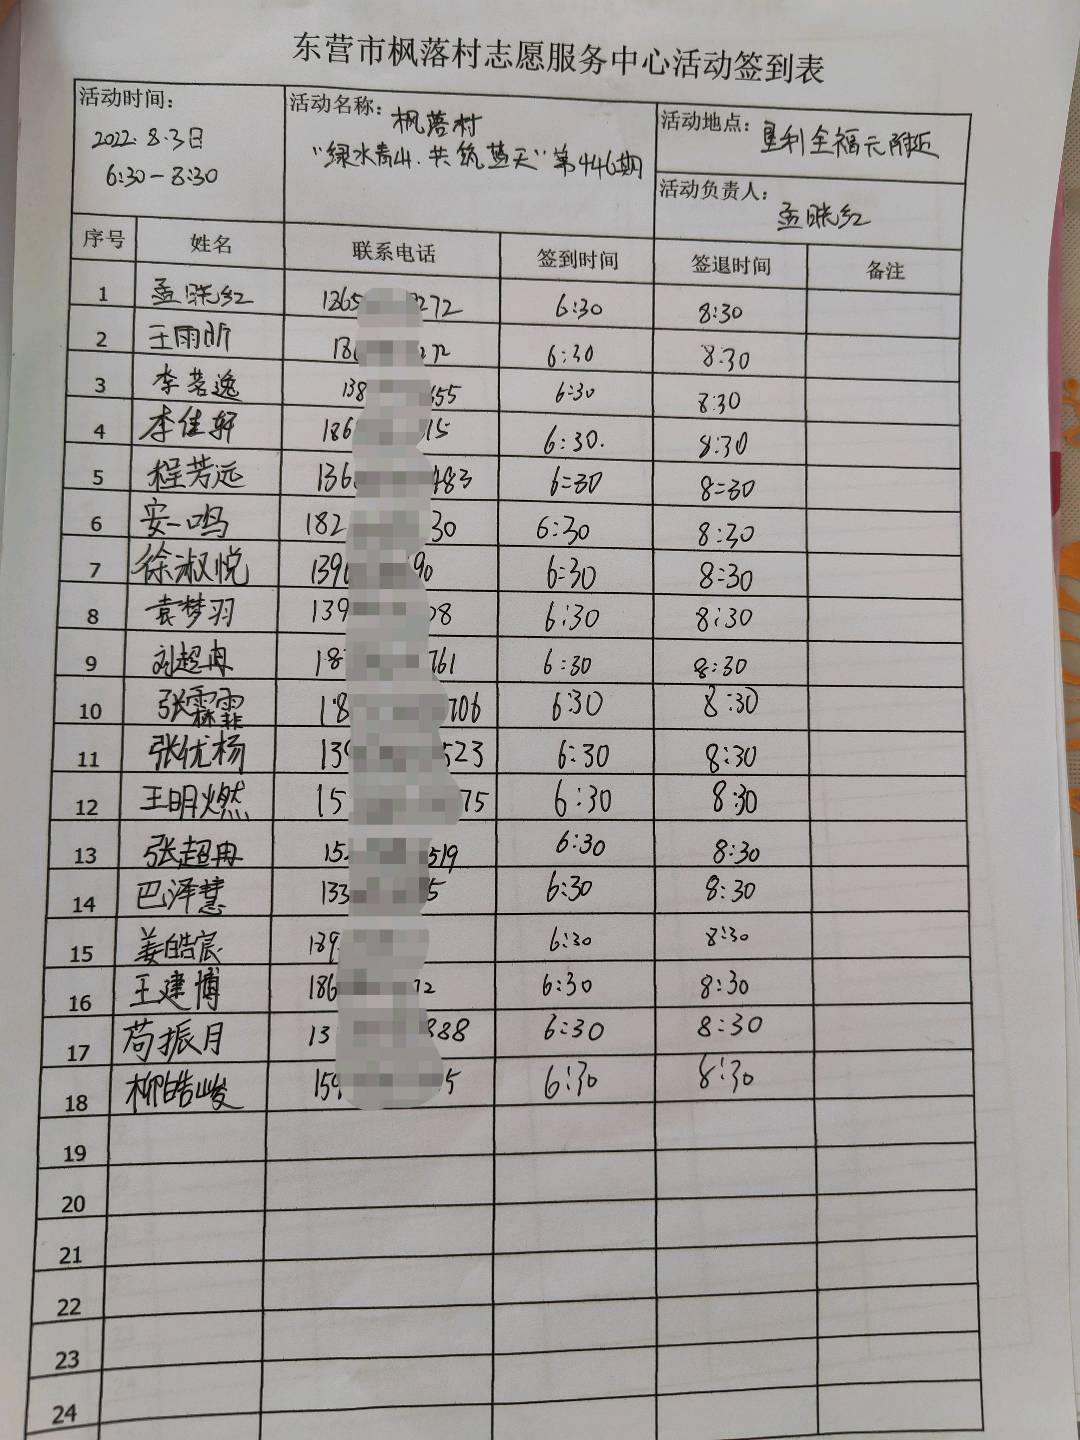 东营市枫落村志愿服务中心活动签到表
活动时间：
2022.8.3日
6:30-8:30
活动名称：枫落村
"绿水青山.共筑蓝天"第446期
活动地点：垦利全福元附近
活动负责人：孟晓红
序号 姓名 联系电话 签到时间 签退时间 备注
1 孟晓红 1365 272 6:30 8:30
2 王雨昕 18 272 6:30 8:30
3 李茗逸 138 655 6:30 8:30
4 李佳轩 186 15 6:30. 8:30
5 程芳远 136 483 6:30 8:30
6 安一鸣 182 30 6:30 8:30
7 徐淑悦 139 90 6:30 8:30
8 袁梦羽 139 08 6:30 8:30
9 刘超冉 18 761 6:30 8:30
10 张霖霏 18 706 6:30 8:30
11 张优杨 139 523 6:30 8:30
12 王明燃 15 75 6:30 8:30
13 张超冉 15 519 6:30 8:30
14 巴泽慧 133 5 6:30 8:30
15 姜皓宸 139 6:30 8:30
16 王建博 186 72 6:30 8:30
17 苟振月 13 888 6:30 8:30
18 柳皓峻 159 5 6:30 8:30
19
20
21
22
23
24